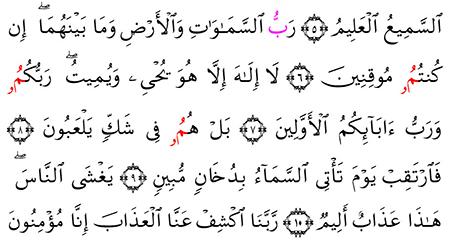 ٱلسَّمِيعُ ٱلْعَلِيمُ ۝٥ رَبُّ ٱلسَّمَٰوَٰتِ وَٱلْأَرْضِ وَمَا بَيْنَهُمَآۖ إِن
كُنتُمُۥ مُوقِنِينَ ۝٦ لَآ إِلَٰهَ إِلَّا هُوَ يُحْيِۦ وَيُمِيتُۖ رَبُّكُمُۥ
وَرَبُّ ءَابَآئِكُمُ ٱلْأَوَّلِينَ ۝٧ بَلْ هُمُۥ فِى شَكٍّ يَلْعَبُونَ ۝٨
فَٱرْتَقِبْ يَوْمَ تَأْتِى ٱلسَّمَآءُ بِدُخَانٍ مُّبِينٍ ۝٩ يَغْشَى ٱلنَّاسَۖ
هَٰذَا عَذَابٌ أَلِيمٌ ۝١٠ رَّبَّنَا ٱكْشِفْ عَنَّا ٱلْعَذَابَ إِنَّا مُؤْمِنُونَ